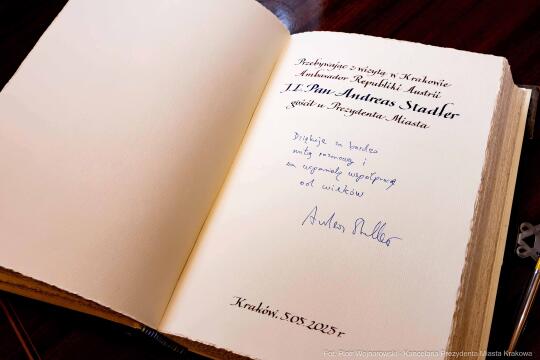 Przebywając z wizytą w Krakowie
Ambasador Republiki Austrii
J.E. Pan Andreas Stadler
gościł u Prezydenta Miasta
Dziękuję za bardzo
miłą rozmowę i
za wspaniałą współpracę
od wieków
Andreas Stadler
Kraków, 5.05.2025 r.
Fot. Piotr Wojnarowski - Kancelaria Prezydenta Miasta Krakowa